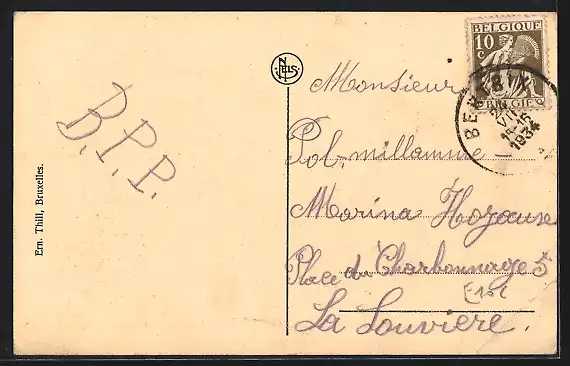 B.P.P.
Ern. Thill, Bruxelles.
NELS
BELGIQUE
10
c
BELGIË
14-15
1934
Monsieur
Pol. millamme
Marina
Place du Charbonnage 5
La Louviere.